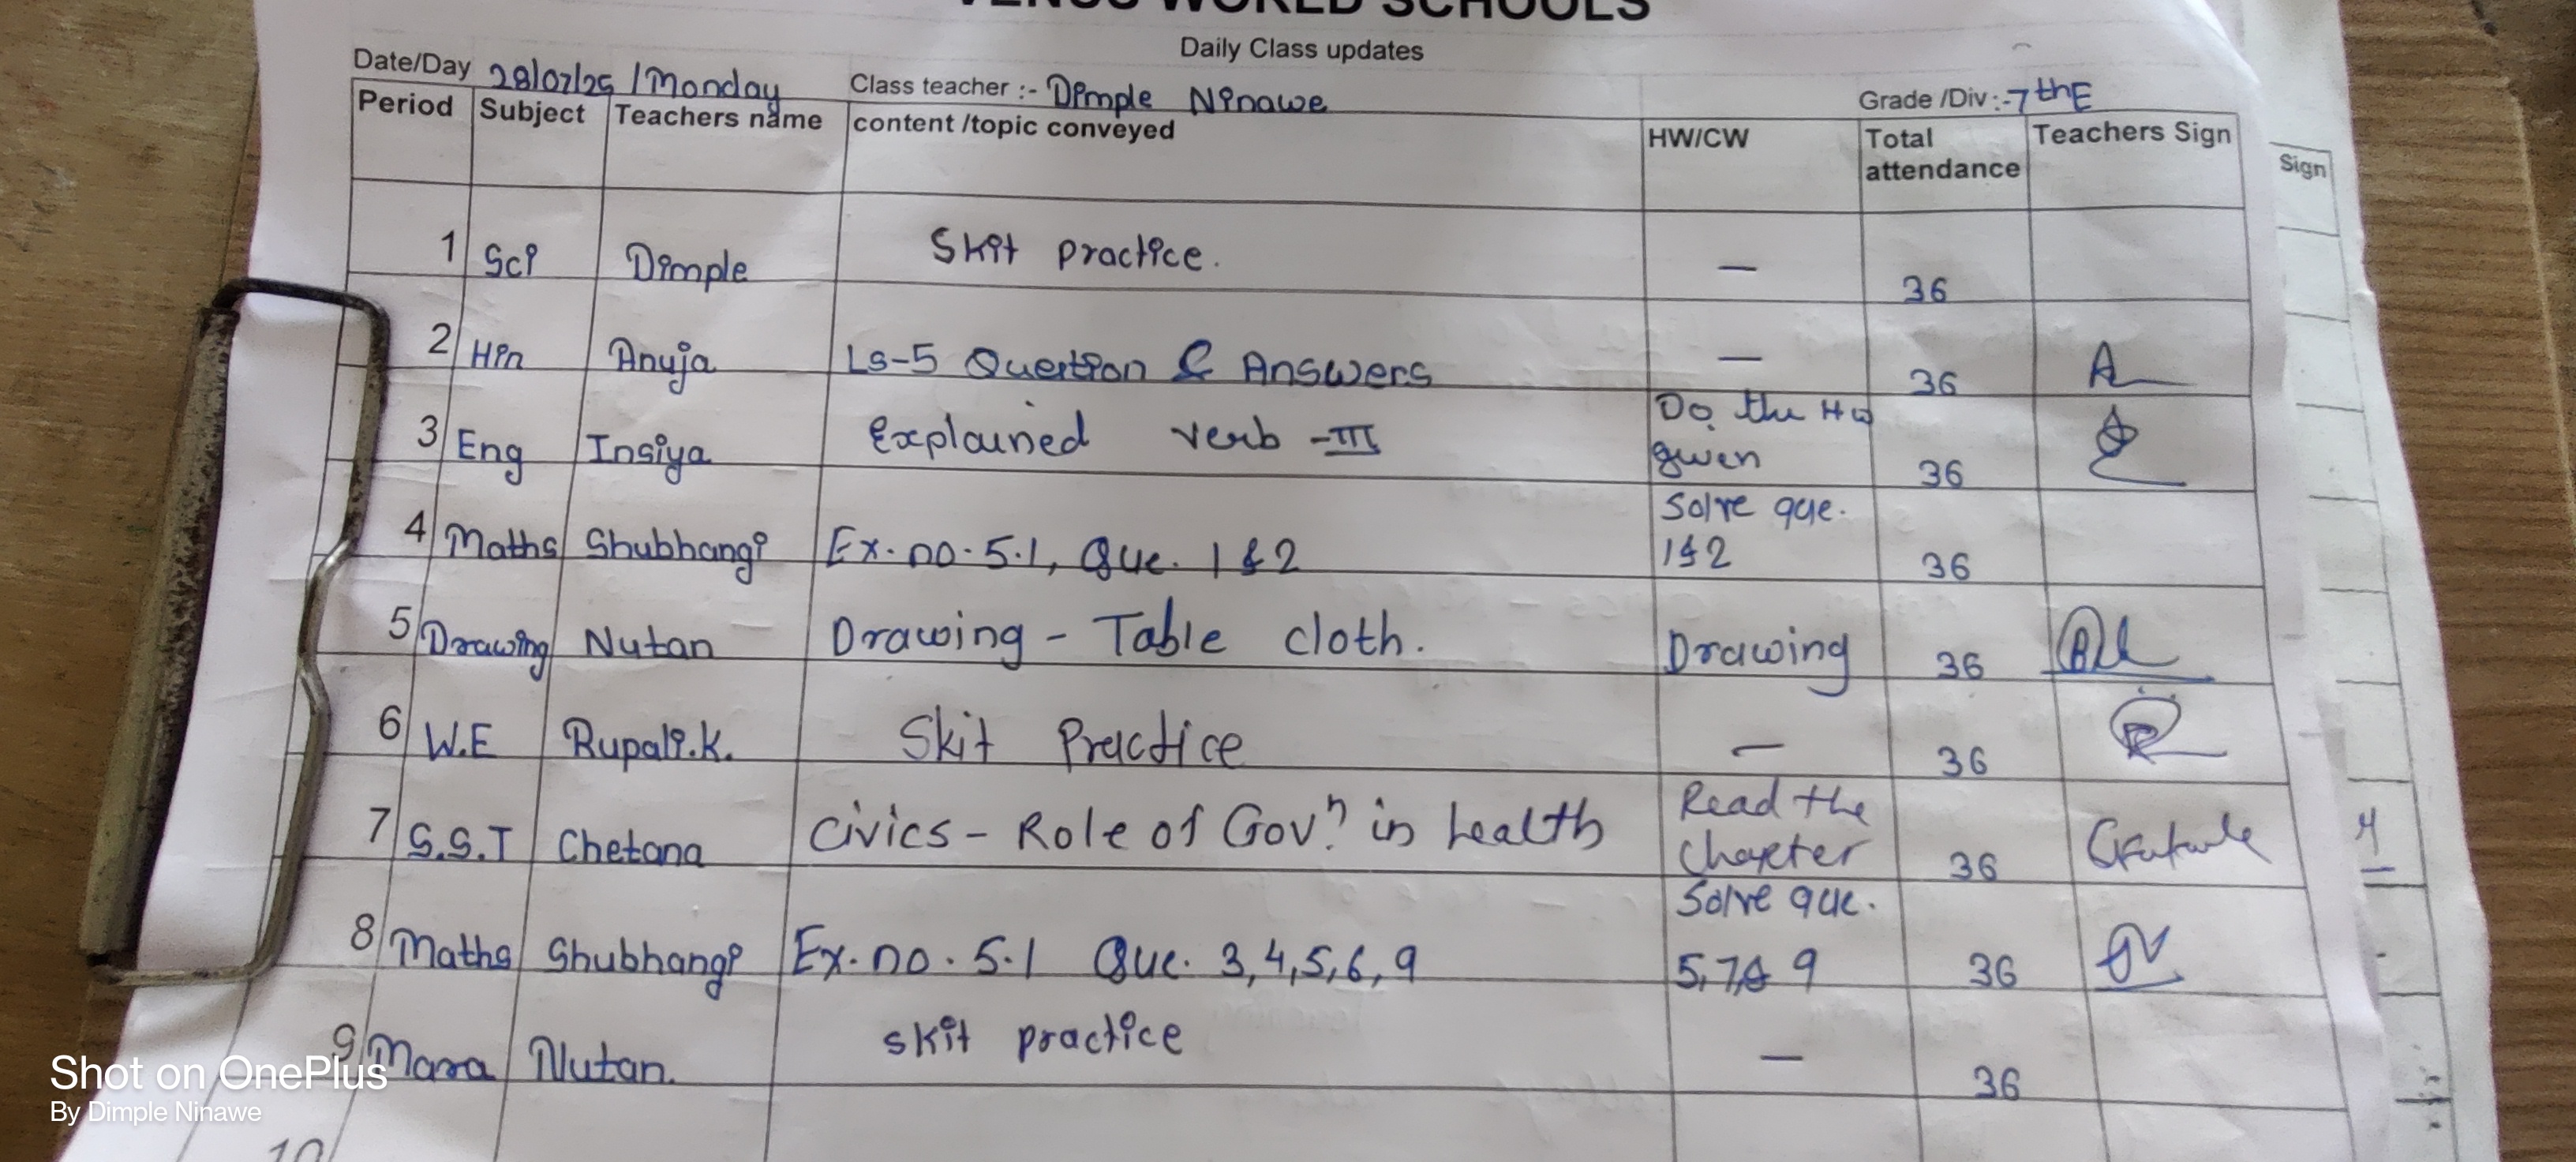 VENUS WORLD SCHOOLS
Daily Class updates
Date/Day 28/07/25 /Monday Class teacher :- Dimple Ninawe Grade /Div :-7thE
Period Subject Teachers name content /topic conveyed HW/CW Total attendance Teachers Sign
Sign
1 Sci Dimple Skit practice. — 36
2 Hin Anuja Ls-5 Question & Answers — 36 A
3 Eng Insiya Explained verb -III Do the HW given 36
4 Maths Shubhangi Ex. no. 5.1, Que. 1 & 2 Solve que. 1 & 2 36
5 Drawing Nutan Drawing - Table cloth. Drawing 36
6 W.E Rupali.K. Skit Practice — 36
7 S.S.T Chetana Civics - Role of Govn. in health Read the Chapter 36
8 Maths Shubhangi Ex. no. 5.1 Que. 3,4,5,6,9 Solve que. 5,7, 9 36
9 Mara Nutan. skit practice — 36
10
Shot on OnePlus
By Dimple Ninawe